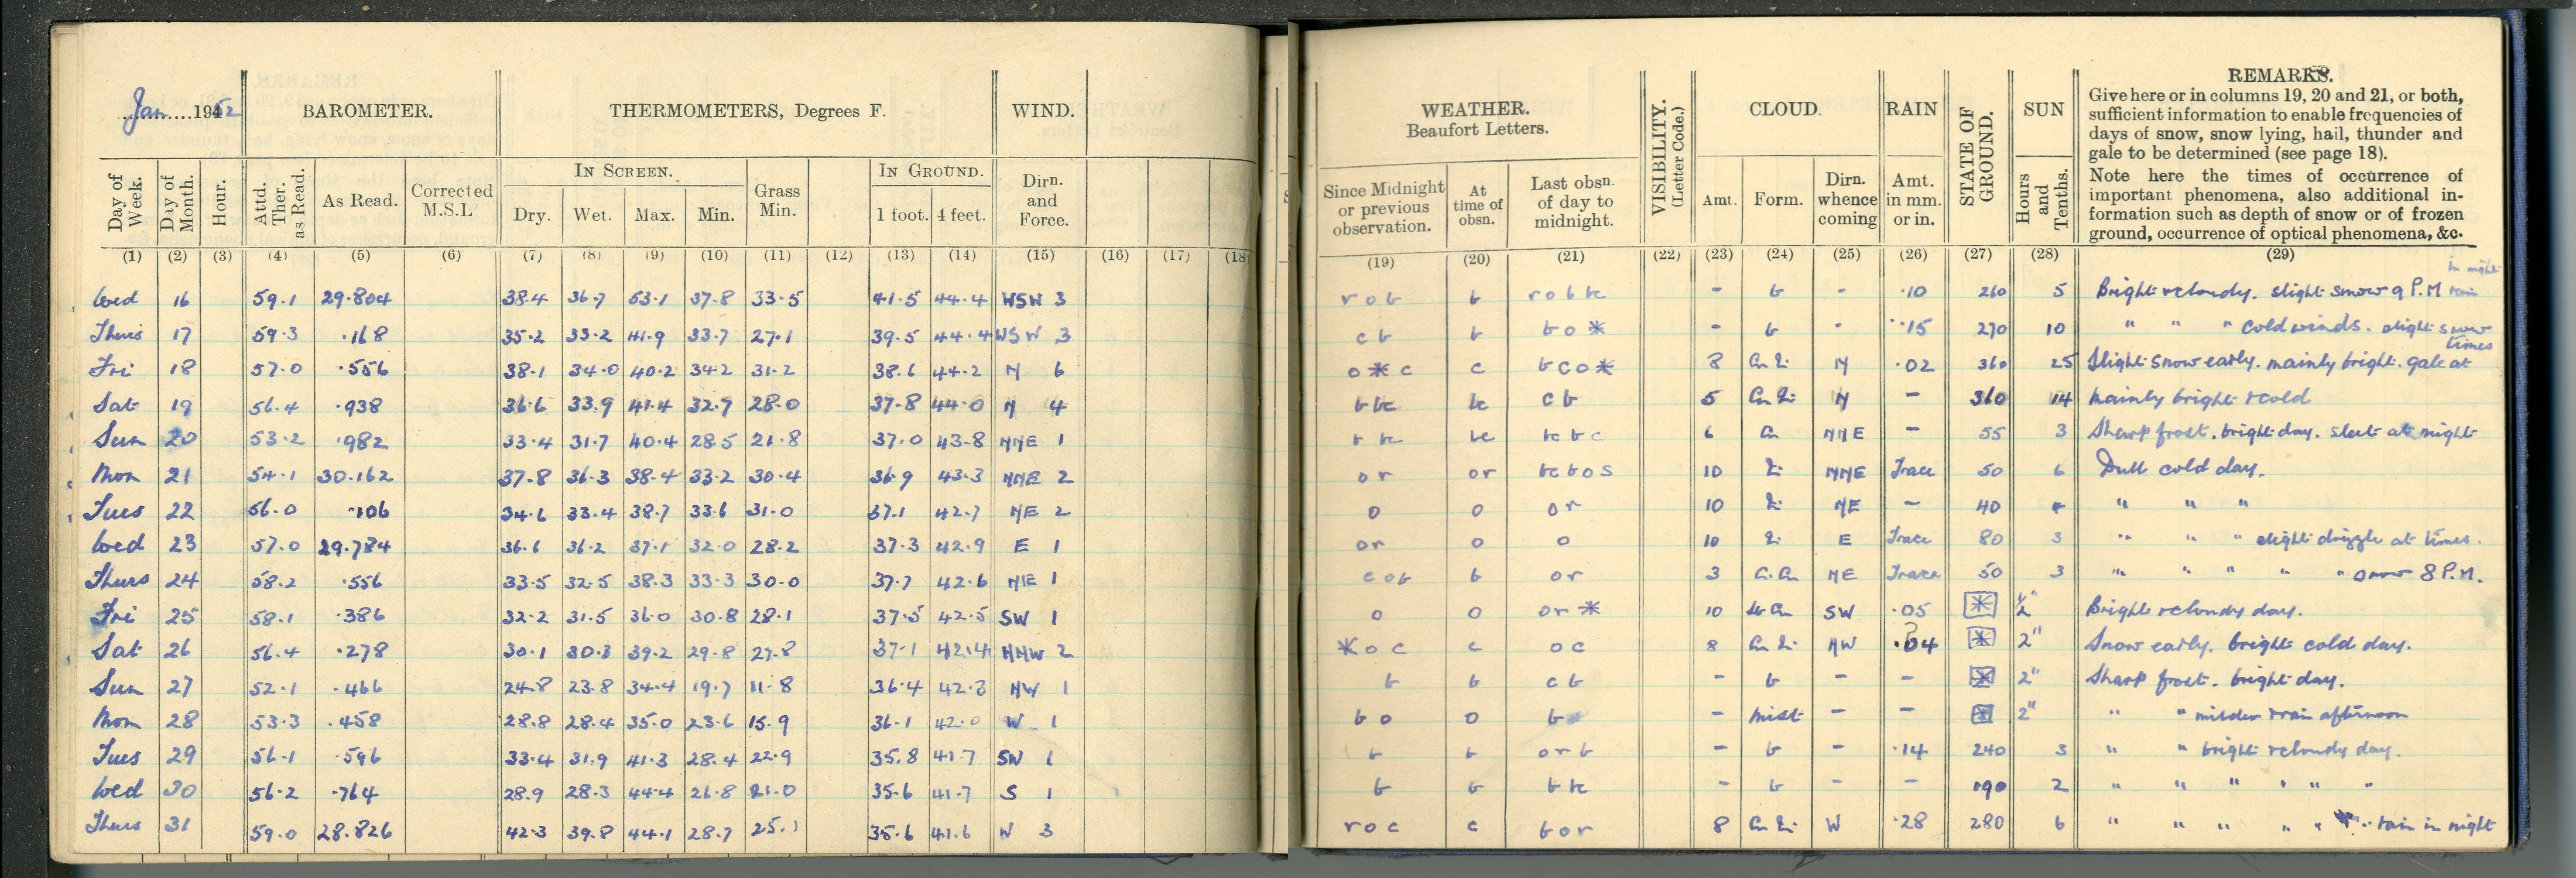 Jan 1952 BAROMETER. THERMOMETERS, Degrees F. WIND.
IN SCREEN. IN GROUND.
Day of Week. Day of Month. Hour. Attd. Ther. as Read. As Read. Corrected M.S.L Dry. Wet. Max. Min. Grass Min. 1 foot. 4 feet. Dirn. and Force.
(1) (2) (3) (4) (5) (6) (7) (8) (9) (10) (11) (12) (13) (14) (15) (16) (17) (18)
Wed 16 59.1 29.804 38.4 36.7 53.1 37.8 33.5 41.5 44.4 WSW 3
Thurs 17 59.3 .168 35.2 33.2 41.9 33.7 27.1 39.5 44.4 WSW 3
Fri 18 57.0 .556 38.1 34.0 40.2 34.2 31.2 38.6 44.2 N 6
Sat 19 56.4 .938 36.6 33.9 41.4 32.7 28.0 37.8 44.0 N 4
Sun 20 53.2 .982 33.4 31.7 40.4 28.5 21.8 37.0 43.8 NNE 1
Mon 21 54.1 30.162 37.8 36.3 38.4 33.2 30.4 36.9 43.3 NNE 2
Tues 22 56.0 .106 34.6 33.4 38.7 33.6 31.0 37.1 42.7 NE 2
Wed 23 57.0 29.784 36.6 36.2 37.1 32.0 28.2 37.3 42.9 E 1
Thurs 24 58.2 .556 33.5 32.5 38.3 33.3 30.0 37.7 42.6 NE 1
Fri 25 58.1 .386 32.2 31.5 36.0 30.8 28.1 37.5 42.5 SW 1
Sat 26 56.4 .278 30.1 30.3 39.2 29.8 27.8 37.1 42.4 NNW 2
Sun 27 52.1 .466 24.8 23.8 34.4 19.7 11.8 36.4 42.3 NW 1
Mon 28 53.3 .458 28.8 28.4 35.0 23.6 15.9 36.1 42.0 W 1
Tues 29 56.1 .596 33.4 31.9 41.3 28.4 22.9 35.8 41.7 SW 1
Wed 30 56.2 .764 28.9 28.3 44.4 26.8 21.0 35.6 41.7 S 1
Thurs 31 59.0 28.826 42.3 39.8 44.1 28.7 25.1 35.6 41.6 W 3
WEATHER. Beaufort Letters. VISIBILITY. (Letter Code.) CLOUD. RAIN STATE OF GROUND. SUN REMARKS.
Give here or in columns 19, 20 and 21, or both,
sufficient information to enable frequencies of
days of snow, snow lying, hail, thunder and
gale to be determined (see page 18).
Note here the times of occurrence of
important phenomena, also additional in-
formation such as depth of snow or of frozen
ground, occurrence of optical phenomena, &c.
Since Midnight or previous observation. At time of obsn. Last obsn. of day to midnight. Amt. Form. Dirn. whence coming Amt. in mm. or in. Hours and Tenths.
(19) (20) (21) (22) (23) (24) (25) (26) (27) (28) (29)
r o b b r o b bc - b - .10 260 5 Bright & cloudy. slight snow 9 P.M rain in night
c b b b o * - b - .15 270 10 " " " cold winds. slight snow
o * c c b c o * 8 N .02 360 25 Slight snow early. mainly bright. gale at times
b bc bc c b 5 N - 360 14 mainly bright & cold
b bc bc bc b c 6 Cu NNE - 55 3 Sharp frost. bright day. sleet at night
o r o r bc b o s 10 NNE Trace 50 6 Dull cold day.
o o o r 10 NE - 40 " " "
o r o o 10 E Trace 80 3 " " " slight drizzle at times.
c o b b o r 3 NE Trace 50 3 " " " " " snow 8 P.M.
o o o r * 10 SW .05 * ½" Bright & cloudy day.
* o c c o c 8 NW .04 * 2" Snow early. bright cold day.
b b c b - b - - * 2" Sharp frost. bright day.
b o o b - mist - - * 2" " " milder & rain afternoon
b b o r b - b - .14 240 3 " " bright & cloudy day.
b b b bc - b - - 190 2 " " " " " "
r o c c b o r 8 W .28 280 6 " " " " " rain in night